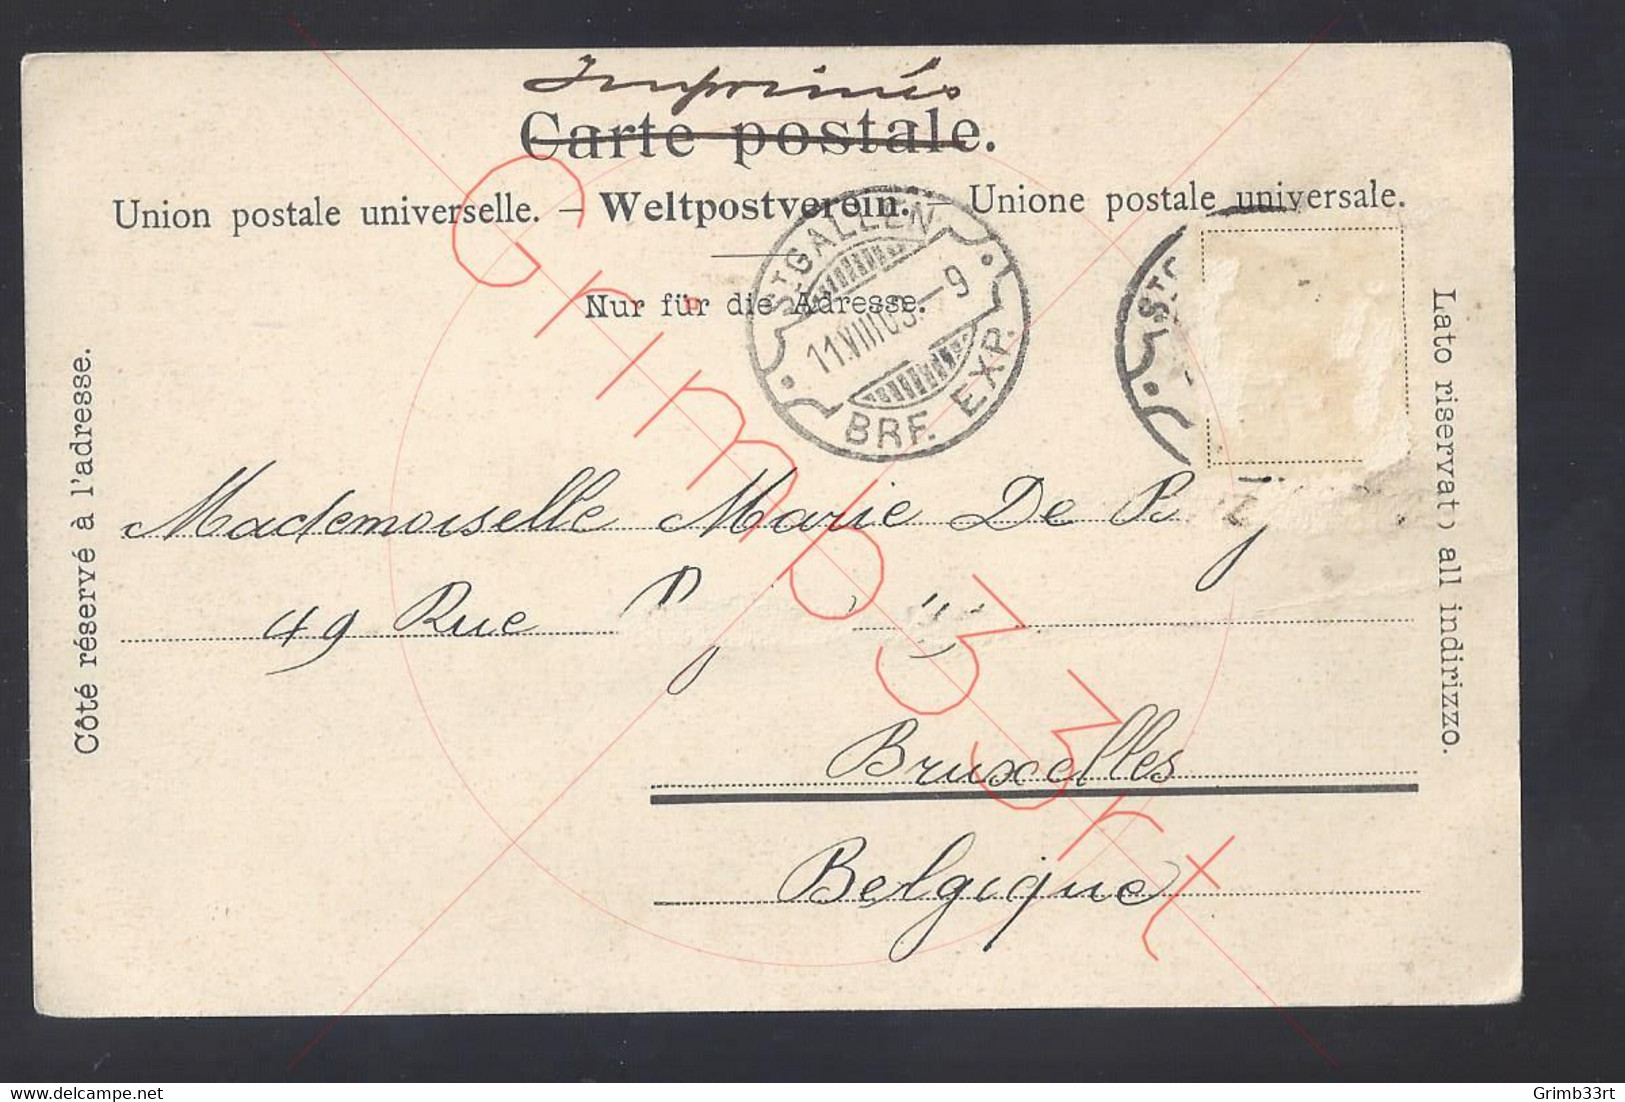 Imprimés
Carte postale.
Union postale universelle. — Weltpostverein. — Unione postale universale.
Nur für die Adresse.
ST GALLEN
11.VIII.03.–9
BRF. EXP.
ST G
Côté réservé à l'adresse.
Lato riservato all indirizzo.
Mademoiselle Marie De B
49 Rue
Bruxelles
Belgique
Grimp33rt
delcampe.net
Grimb33rt